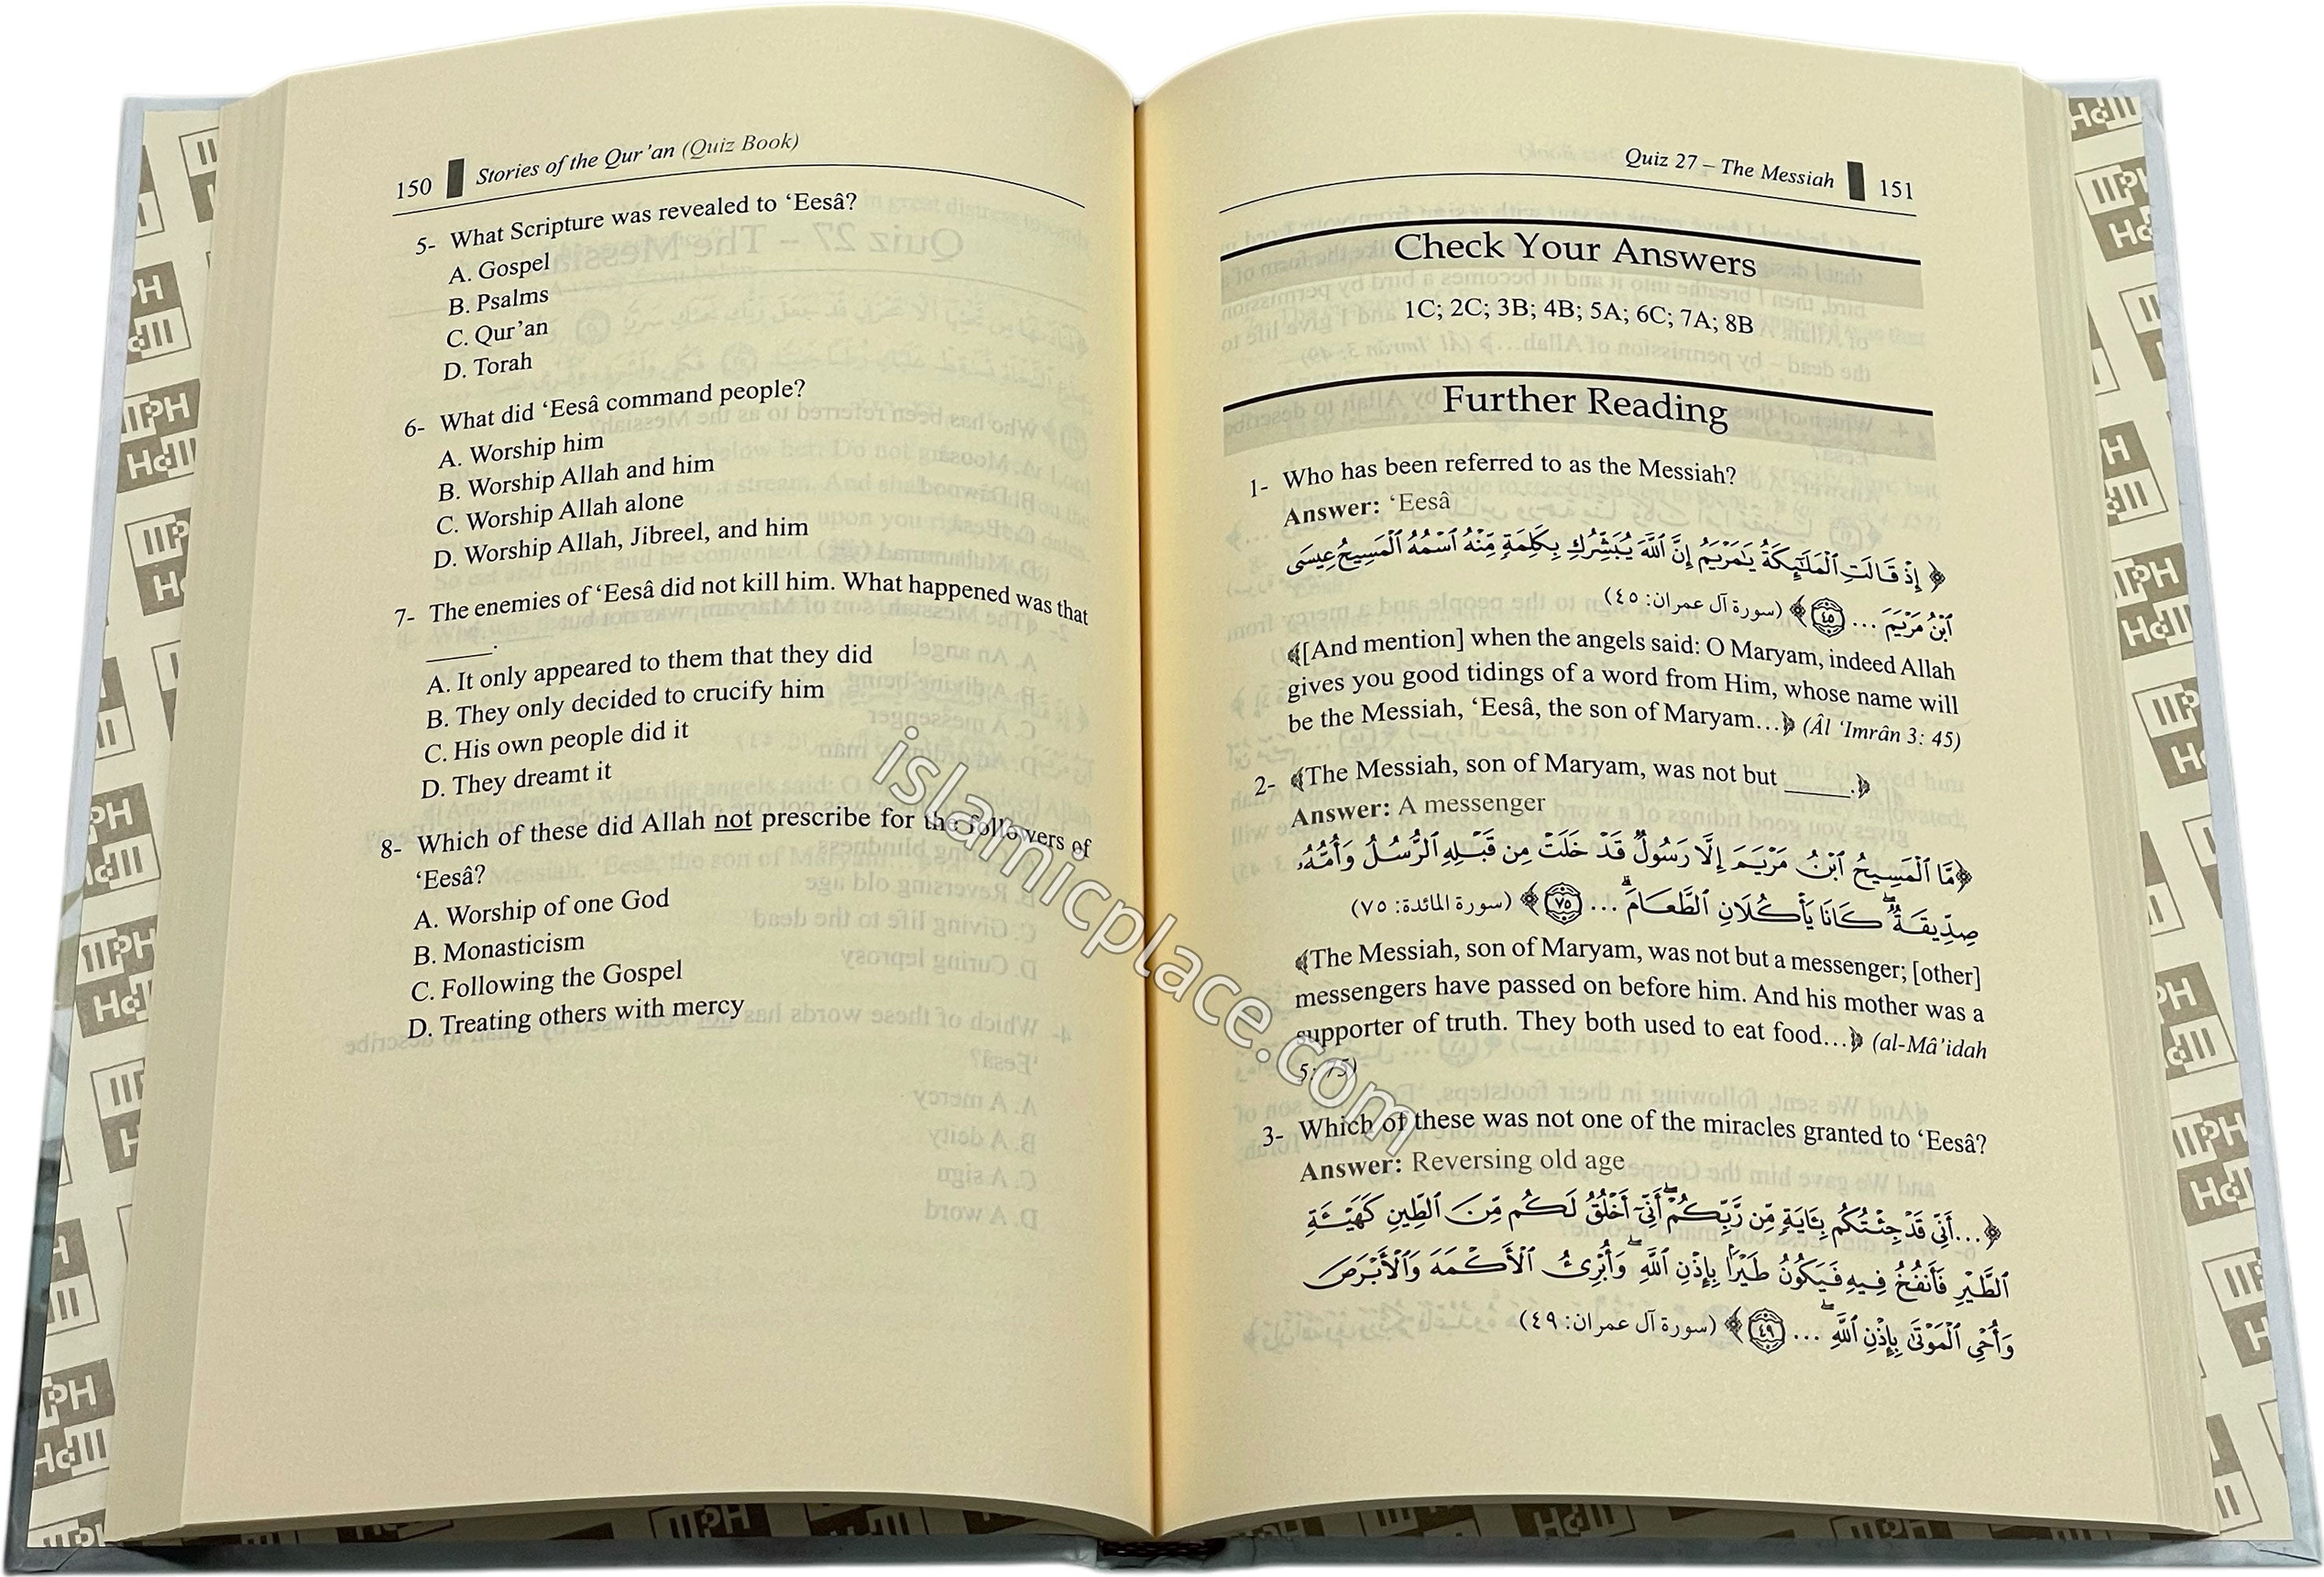 150 Stories of the Qur'an (Quiz Book)
5- What Scripture was revealed to ‘Eesâ?
A. Gospel
B. Psalms
C. Qur’an
D. Torah
6- What did ‘Eesâ command people?
A. Worship him
B. Worship Allah and him
C. Worship Allah alone
D. Worship Allah, Jibreel, and him
7- The enemies of ‘Eesâ did not kill him. What happened was that
______.
A. It only appeared to them that they did
B. They only decided to crucify him
C. His own people did it
D. They dreamt it
8- Which of these did Allah not prescribe for the followers of
‘Eesâ?
A. Worship of one God
B. Monasticism
C. Following the Gospel
D. Treating others with mercy
Quiz 27 – The Messiah 151
Check Your Answers
1C; 2C; 3B; 4B; 5A; 6C; 7A; 8B
Further Reading
1- Who has been referred to as the Messiah?
Answer: ‘Eesâ
﴿إِذْ قَالَتِ ٱلْمَلَٰٓئِكَةُ يَٰمَرْيَمُ إِنَّ ٱللَّهَ يُبَشِّرُكِ بِكَلِمَةٍ مِّنْهُ ٱسْمُهُ ٱلْمَسِيحُ عِيسَى
ٱبْنُ مَرْيَمَ ... ٤٥﴾ (سورة آل عمران: ٤٥)
﴾[And mention] when the angels said: O Maryam, indeed Allah
gives you good tidings of a word from Him, whose name will
be the Messiah, ‘Eesâ, the son of Maryam...﴿ (Âl ‘Imrân 3: 45)
2- ﴾The Messiah, son of Maryam, was not but ______.﴿
Answer: A messenger
﴿مَّا ٱلْمَسِيحُ ٱبْنُ مَرْيَمَ إِلَّا رَسُولٌ قَدْ خَلَتْ مِن قَبْلِهِ ٱلرُّسُلُ وَأُمُّهُۥ
صِدِّيقَةٌ ۖ كَانَا يَأْكُلَانِ ٱلطَّعَامَ ۗ ... ٧٥﴾ (سورة المائدة: ٧٥)
﴾The Messiah, son of Maryam, was not but a messenger; [other]
messengers have passed on before him. And his mother was a
supporter of truth. They both used to eat food...﴿ (al-Mâ’idah
5: 75)
3- Which of these was not one of the miracles granted to ‘Eesâ?
Answer: Reversing old age
﴿...أَنِّى قَدْ جِئْتُكُم بِـَٔايَةٍ مِّن رَّبِّكُمْ ۖ أَنِّىٓ أَخْلُقُ لَكُم مِّنَ ٱلطِّينِ كَهَيْـَٔةِ
ٱلطَّيْرِ فَأَنفُخُ فِيهِ فَيَكُونُ طَيْرًۢا بِإِذْنِ ٱللَّهِ ۖ وَأُبْرِئُ ٱلْأَكْمَهَ وَٱلْأَبْرَصَ
وَأُحْىِ ٱلْمَوْتَىٰ بِإِذْنِ ٱللَّهِ ۖ ... ٤٩﴾ (سورة آل عمران: ٤٩)
islamicplace.com